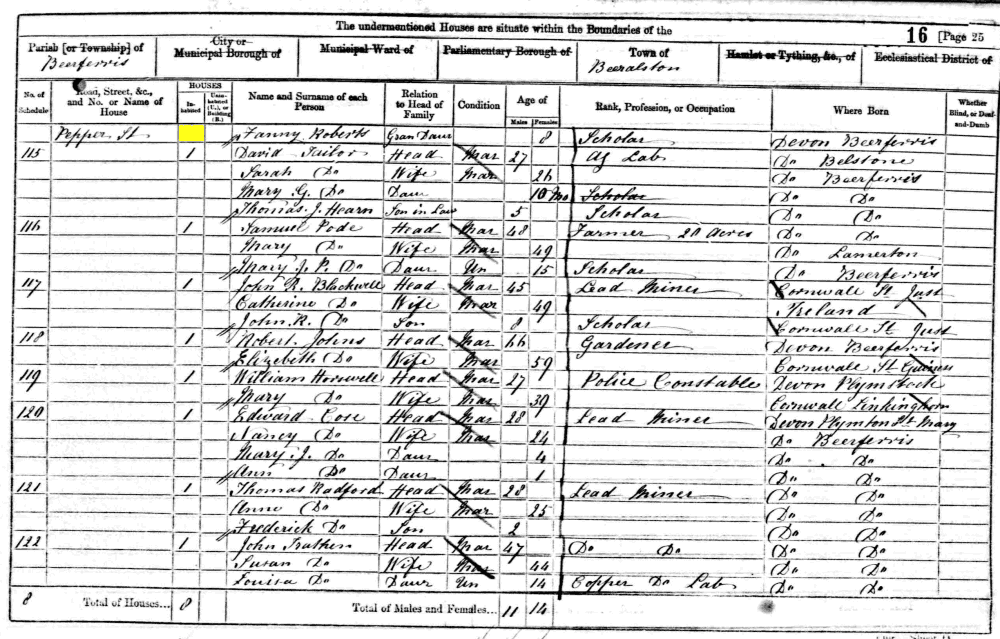 The undermentioned Houses are situate within the Boundaries of the
16 [Page 25
Parish [or Township] of Beerferris
City or Municipal Borough of
Municipal Ward of
Parliamentary Borough of
Town of Beeralston
Hamlet or Tything, &c., of
Ecclesiastical District of
No. of Schedule
Road, Street, &c., and No. or Name of House
HOUSES Inhabited Uninhabited (U.), or Building (B.)
Name and Surname of each Person
Relation to Head of Family
Condition
Age of Males Females
Rank, Profession, or Occupation
Where Born
Whether Blind, or Deaf-and-Dumb
Pepper St Fanny Roberts Gran Daur 8 Scholar Devon Beerferris
115 1 David Tailor Head Mar 27 Ag Lab Do Belstone
Sarah Do Wife Mar 26 Do Beerferris
Mary G. Do Daur 10 Mo Scholar Do Do
Thomas J. Hearn Son in Law 5 Scholar Do Do
116 1 Samuel Pode Head Mar 48 Farmer 20 Acres Do Do
Mary Do Wife Mar 49 Do Lamerton
Mary J. P. Do Daur Un 15 Scholar Do Beerferris
117 1 John R. Blackwell Head Mar 45 Lead Miner Cornwall St Just
Catherine Do Wife Mar 49 Ireland
John R. Do Son 8 Scholar Cornwall St Just
118 1 Robert Johns Head Mar 66 Gardener Devon Beerferris
Elizabeth Do Wife Mar 59 Cornwall St
119 1 William Horswell Head Mar 27 Police Constable Devon Plymstock
Mary Do Wife Mar 39 Cornwall Linkinghorn
120 1 Edward Cose Head Mar 28 Lead Miner Devon Plympton St Mary
Nancy Do Wife Mar 24 Do Beerferris
Mary J. Do Daur 4 Do Do
Ann Do Daur 1 Do Do
121 1 Thomas Radford Head Mar 28 Lead Miner Do Do
Anne Do Wife Mar 25 Do Do
Frederick Do Son 2 Do Do
122 1 John Trathen Head Mar 47 Do Do Do Do
Susan Do Wife Mar 44 Do Do
Louisa Do Daur Un 14 Copper Do Lab Do Do
8 Total of Houses... 8 Total of Males and Females... 11 14